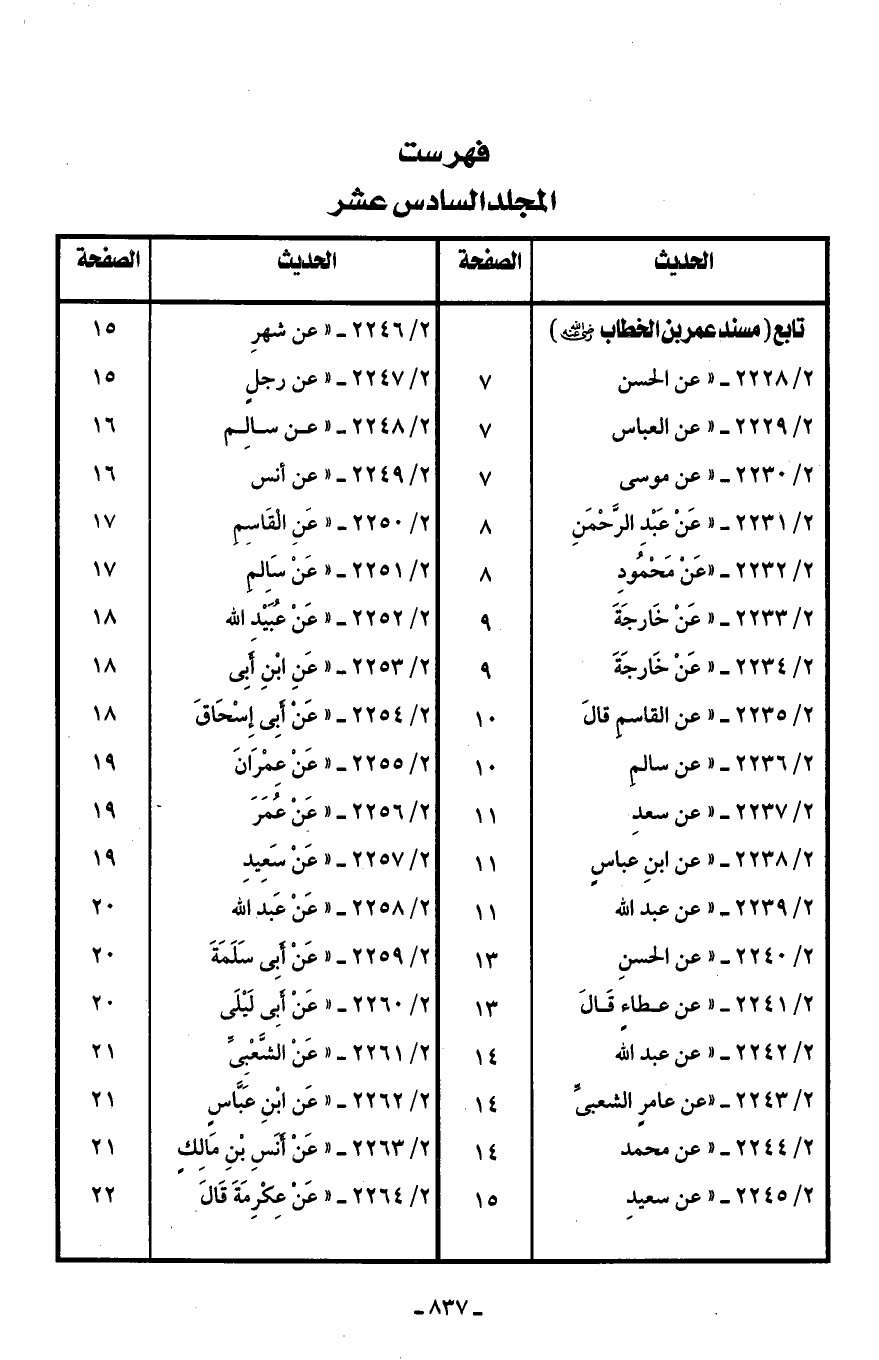 فهرست
المجلد السادس عشر
الحديث الصفحة
تابع (مسند عمر بن الخطاب رضي الله عنه)
٢/ ٢٢٢٨ ـ « عن الحسن ٧
٢/ ٢٢٢٩ ـ « عن العباس ٧
٢/ ٢٢٣٠ ـ « عن موسى ٧
٢/ ٢٢٣١ ـ « عَنْ عَبْدِ الرَّحْمَنِ ٨
٢/ ٢٢٣٢ ـ «عَنْ مَحْمُودِ ٨
٢/ ٢٢٣٣ ـ « عَنْ خَارِجَةَ ٩
٢/ ٢٢٣٤ ـ « عَنْ خَارِجَةَ ٩
٢/ ٢٢٣٥ ـ « عن القاسمِ قالَ ١٠
٢/ ٢٢٣٦ ـ « عن سالمِ ١٠
٢/ ٢٢٣٧ ـ « عن سعدِ ١١
٢/ ٢٢٣٨ ـ « عن ابنِ عباسٍ ١١
٢/ ٢٢٣٩ ـ « عن عبد الله ١١
٢/ ٢٢٤٠ ـ « عن الحسنِ ١٣
٢/ ٢٢٤١ ـ « عن عـطاءٍ قَـالَ ١٣
٢/ ٢٢٤٢ ـ « عن عبد الله ١٤
٢/ ٢٢٤٣ ـ «عن عامرٍ الشعبىِّ ١٤
٢/ ٢٢٤٤ ـ « عن محمد ١٤
٢/ ٢٢٤٥ ـ « عن سعيدِ ١٥
الحديث الصفحة
٢/ ٢٢٤٦ ـ « عن شهرِ ١٥
٢/ ٢٢٤٧ ـ « عن رجلٍ ١٥
٢/ ٢٢٤٨ ـ « عـن سـالـمِ ١٦
٢/ ٢٢٤٩ ـ « عن أنس ١٦
٢/ ٢٢٥٠ ـ « عَنِ الْقَاسِمِ ١٧
٢/ ٢٢٥١ ـ « عَنْ سَالِمِ ١٧
٢/ ٢٢٥٢ ـ « عَنْ عُبَيْدِ الله ١٨
٢/ ٢٢٥٣ ـ « عَنِ ابْنِ أَبِى ١٨
٢/ ٢٢٥٤ ـ « عَنْ أَبِى إِسْحَاقَ ١٨
٢/ ٢٢٥٥ ـ « عَنْ عِمْرَانَ ١٩
٢/ ٢٢٥٦ ـ « عَنْ عُمَرَ ١٩
٢/ ٢٢٥٧ ـ « عَنْ سَعِيدِ ١٩
٢/ ٢٢٥٨ ـ « عَنْ عَبد الله ٢٠
٢/ ٢٢٥٩ ـ « عَنْ أَبِى سَلَمَةَ ٢٠
٢/ ٢٢٦٠ ـ « عَنْ أَبِى لَيْلَى ٢٠
٢/ ٢٢٦١ ـ « عَنْ الشَّعْبِىِّ ٢١
٢/ ٢٢٦٢ ـ « عَن ابْنِ عَبَّاسٍ ٢١
٢/ ٢٢٦٣ ـ « عَنْ أَنَسِ بْنِ مَالِكٍ ٢١
٢/ ٢٢٦٤ ـ « عَنْ عِكْرِمَةَ قَالَ ٢٢
ـ ٨٣٧ ـ